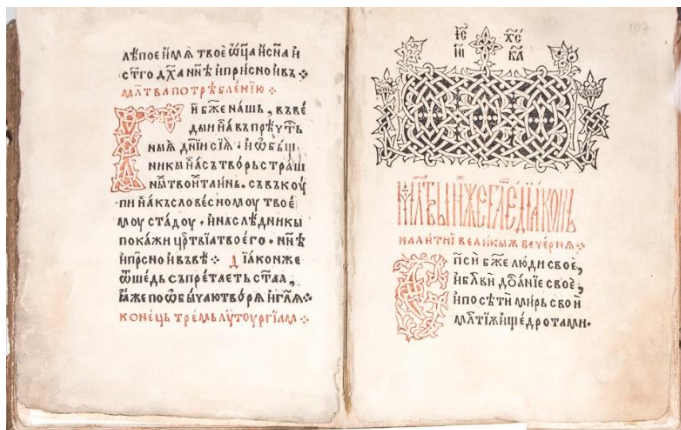 лѣпое и҆мѧ твоѐ ѡ҃ца и҆ сн҃а и҆
ст҃го дх҃а нн҃ѣ и҆ присно и҆ въ ⁘
мл҃тва потрѣблению ⁘
Г҃и бж҃е нашь, въве
дыи на́ въ прѣчⷭ҇тъ
ныѧ дн҃и сїѧ · и҆ ѡ҆бьщ
никы на́ сътворь страш
ны твои таинь. съвъкоу
пи на́ къ словесномоу твое
моу стадоу · и҆ наслѣдникы
покажи цр҃твїа твоего · нн҃ѣ
и҆ прⷭ҇но и҆ въвѣ ⁘ Дїаконже
ѿшедь съпрѣтаеть ст҃аа,
ꙗже по ѡ҆бычаю творѧ и҆ гл҃ѧ ⁘
конець трѣмь лѵтоургїам ⁘
і҃с х҃с
ни ка
107
Мл҃твы ꙗ҆же гл҃е дїаконь
на литїи великыѧ вечернѧ ⁘
Сп҃си бж҃е люди своѐ,
и҆ бл҃ви до́анїе своѐ,
и҆ посѣти мирь свои
мл҃тїѫ и҆ щедротами.